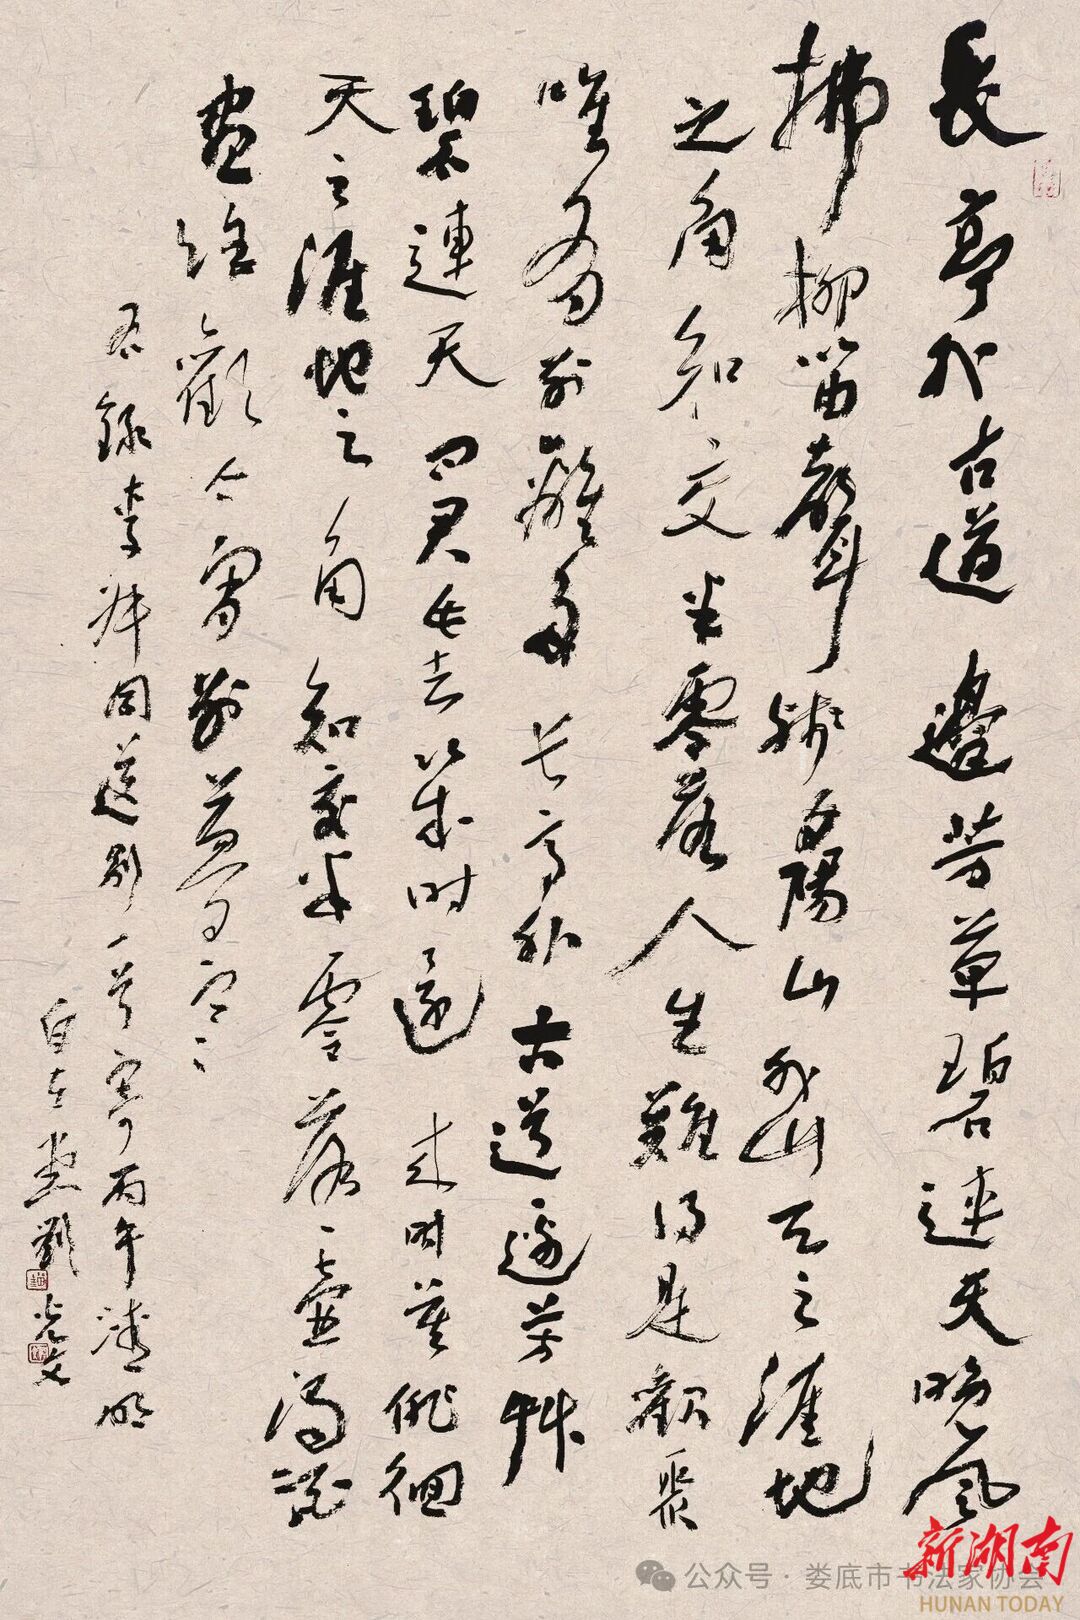 長亭外古道邊芳草碧連天晚風
拂柳笛聲殘夕陽山外山天之涯地
之角知交半零落人生難得是歡聚
唯有別離多長亭外古道邊芳艸
碧連天問君此去幾時還來時莫徘徊
天之涯地之角知交半零落一壺濁酒
盡餘歡今宵別夢寒
右錄李叔同送別一首時丙午清明
白石堂劉光文
新湖南
HUNAN TODAY
公众号·娄底市书法家协会